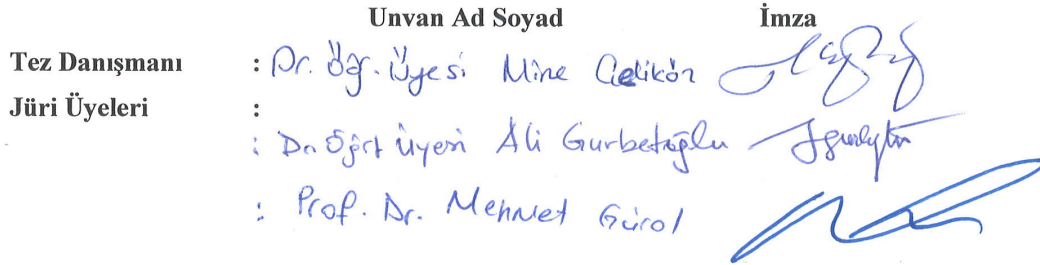 Unvan Ad Soyad İmza
Tez Danışmanı : Dr. Öğr. Üyesi Mine Çelikön
Jüri Üyeleri :
: Dr. Öğrt üyesi Ali Gurbetoğlu
: Prof. Dr. Mehmet Gürol